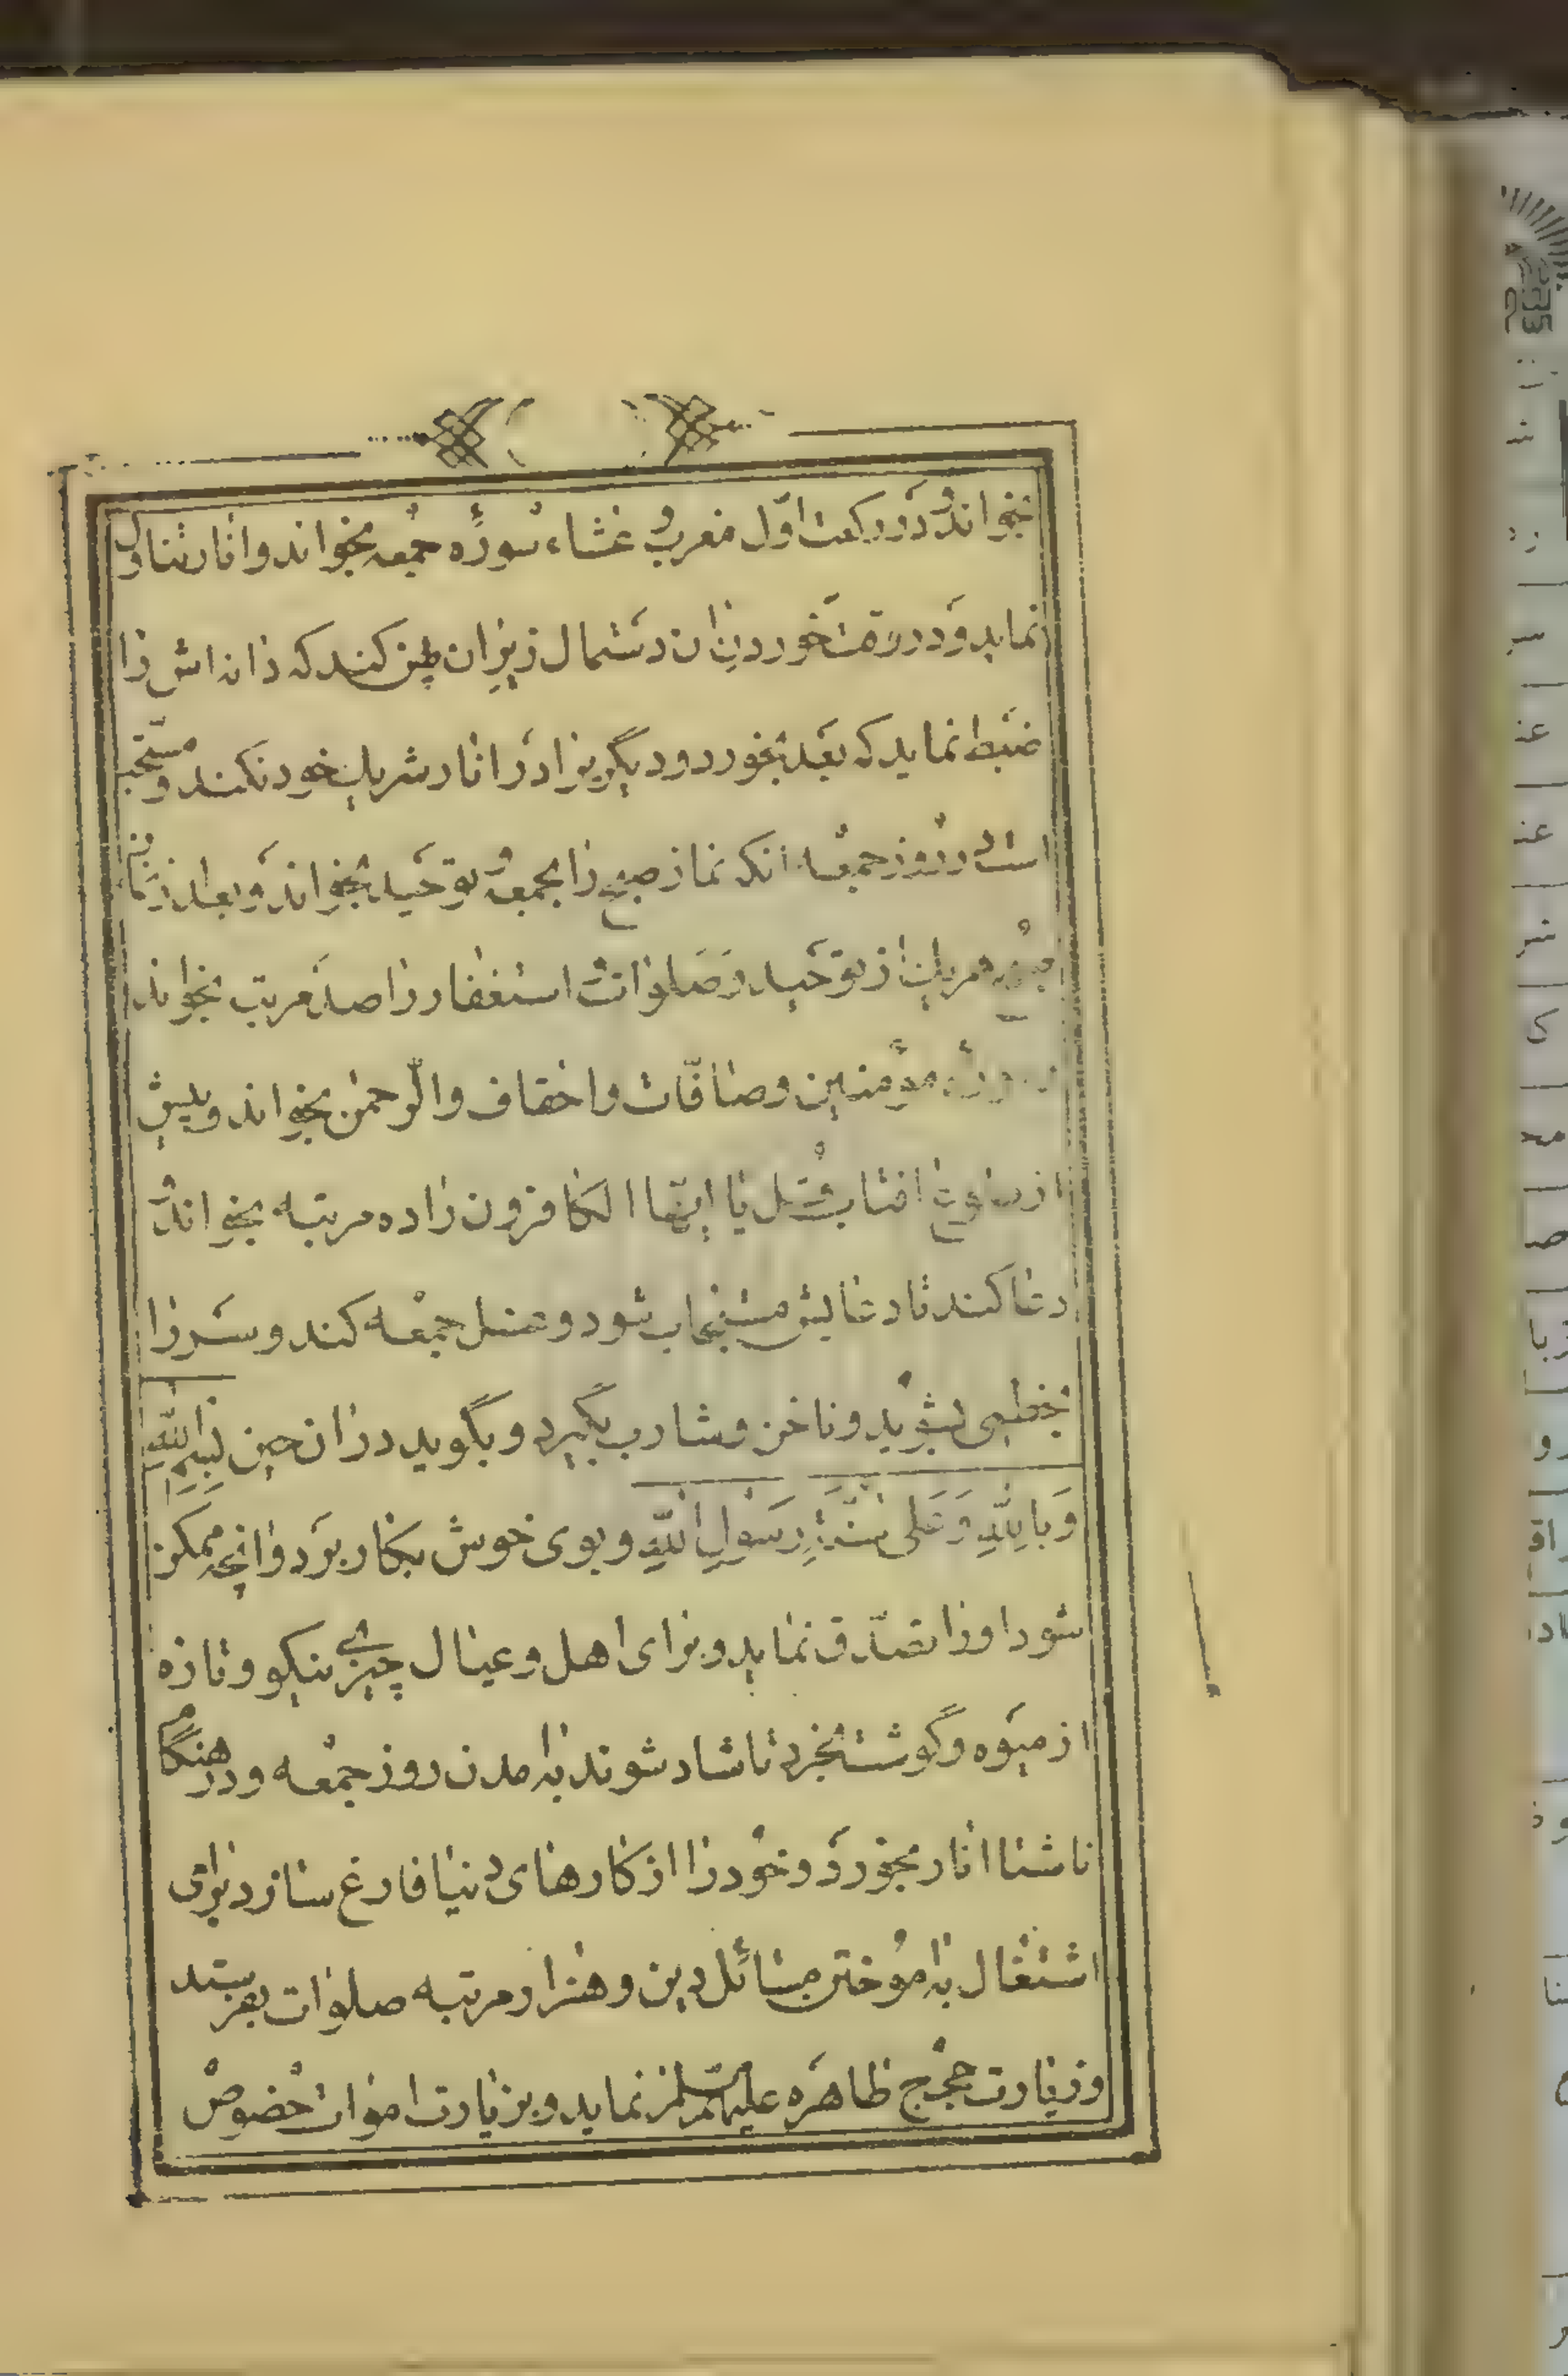 بخواند و در رکعت اوّل مغرب و عشاء سورهٔ جمعه بخواند و انار تناول
نماید و در وقت خوردن ان دستمال زیر ان پهن کند که دانه اش را
ضبط نماید که بعد بخورد و دیگریرا در انار شریک خود نکند و مستحب
است در روز جمعه انکه نماز صبح را بجمعه و توحید بخواند و بعد از نماز
صبح هر یک از توحید و صلوات و استغفار را صد مرتبه بخواند
سورهٔ مؤمنین و صافّات و احقاف و الرّحمن بخواند و پیش
از طلوع افتاب قُل یا ایّها الکافرون را ده مرتبه بخواند و
دعا کند تا دعایش مستجاب شود و غسل جمعه کند و سر را
بخطمی بشوید و ناخن و شارب بگیرد و بگوید در ان حین بِسمِ اللّهِ
وَ بِاللّهِ وَ عَلی سُنَّةِ رَسُولِ اللّهِ و بوی خوش بکار برد و انچه ممکن
شود او را تصدّق نماید و برای اهل و عیال چیزی نیکو و تازه
از میوه و گوشت بخرد تا شاد شوند به امدن روز جمعه و در هنگام
ناشتا انار بخورد و خود را از کارهای دنیا فارغ سازد برای
اشتغال به اموختن مسائل دین و هزار مرتبه صلوات بفرستد
و زیارت حجج طاهره علیهم نماید و بزیارت اموات خصوص